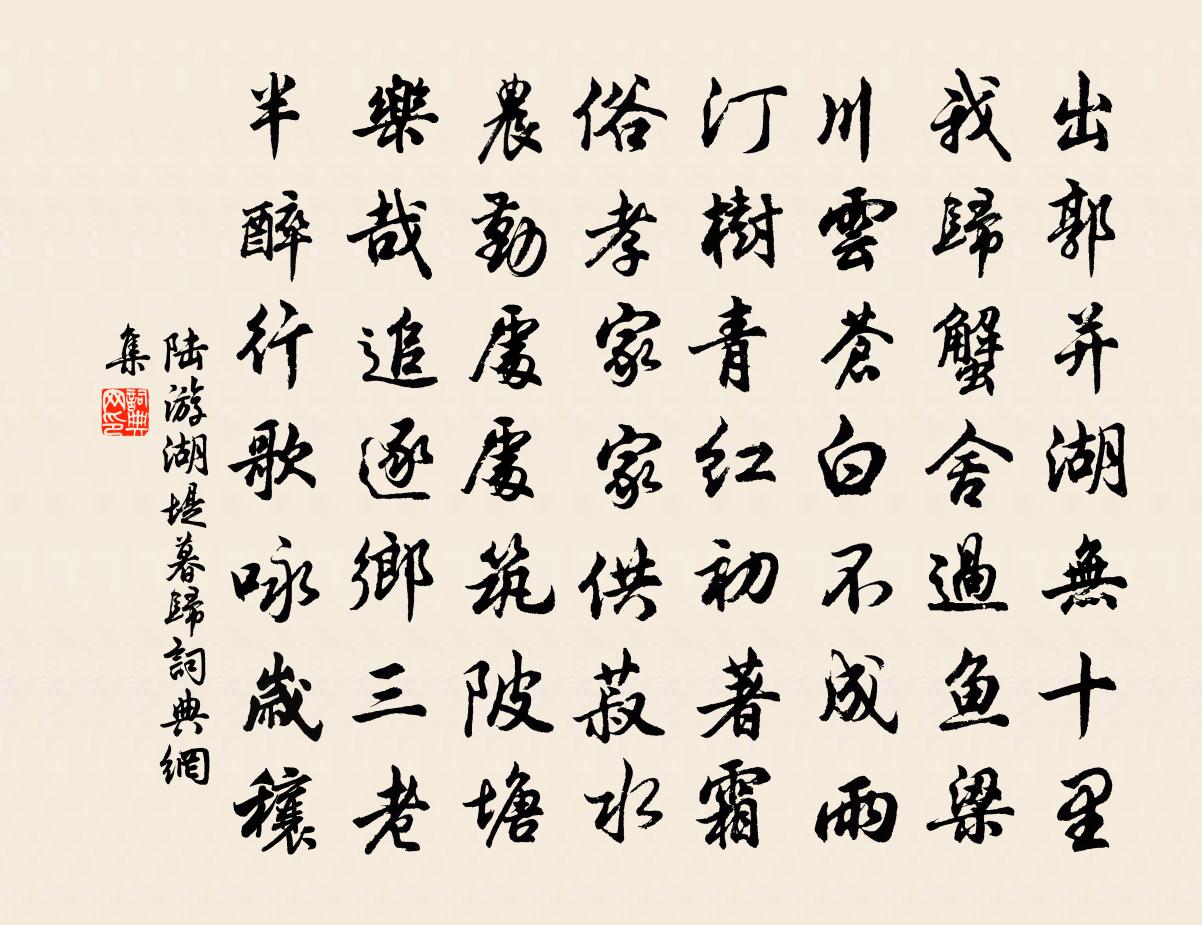 出郭并湖無十里
我歸蟹舍過魚梁
川雲蒼白不成雨
汀樹青紅初著霜
俗孝家家供菽水
農勤處處筑陂塘
樂哉追逐鄉三老
半醉行歌咏歲穰
陸游湖堤暮歸詞典網
集
詞典
网印